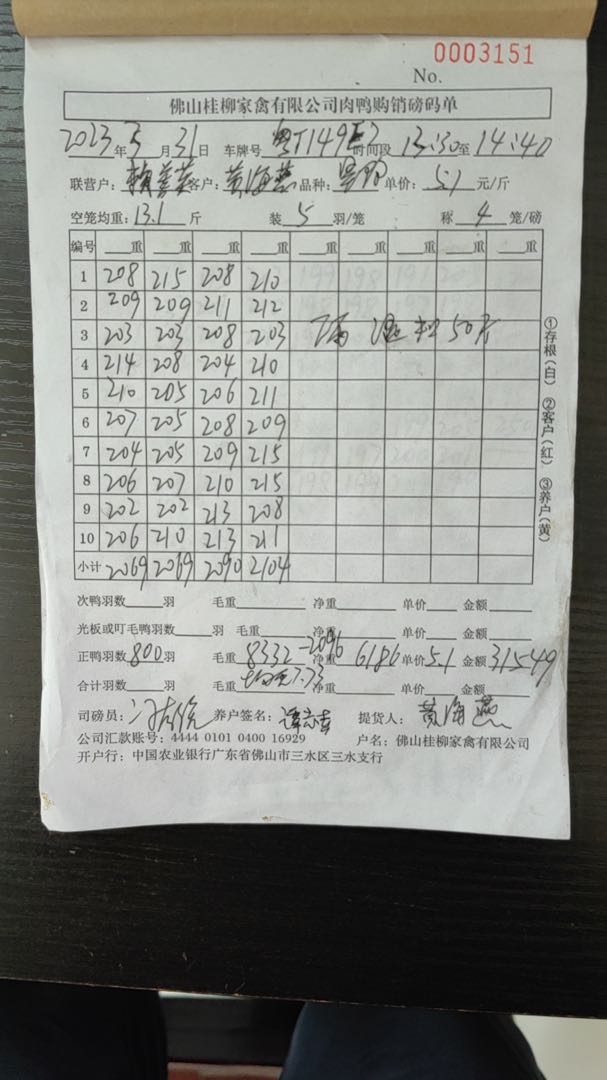 0003151
No.
佛山桂柳家禽有限公司肉鸭购销磅码单
2023年3月31日 车牌号 粤T149 时间段 13:30至14:40
联营户: 客户: 黄海燕 品种: 单价: 5.1 元/斤
空笼均重: 13.1 斤 装 5 羽/笼 称 4 笼/磅
编号 重 重 重 重 重 重 重 重 重
1 208 215 208 210
2 209 209 211 212
3 203 203 208 203 50斤
4 214 208 204 210
5 210 205 206 211
6 207 205 208 209
7 204 205 209 215
8 206 207 210 215
9 202 202 213 208
10 206 210 213 211
小计 2069 2069 2090 2104
①存根(白) ②客户(红) ③养户(黄)
次鸭羽数 羽 毛重 净重 单价 金额
光板或叮毛鸭羽数 羽 毛重 净重 单价 金额
正鸭羽数 800 羽 毛重 8332 -2096 净重 6186 单价 5.1 金额 31549
合计羽数 羽 毛重 均重7.73 净重 单价 金额
司磅员: 养户签名: 提货人: 黄海燕
公司汇款账号: 4444 0101 0400 16929 户名: 佛山桂柳家禽有限公司
开户行: 中国农业银行广东省佛山市三水区三水支行